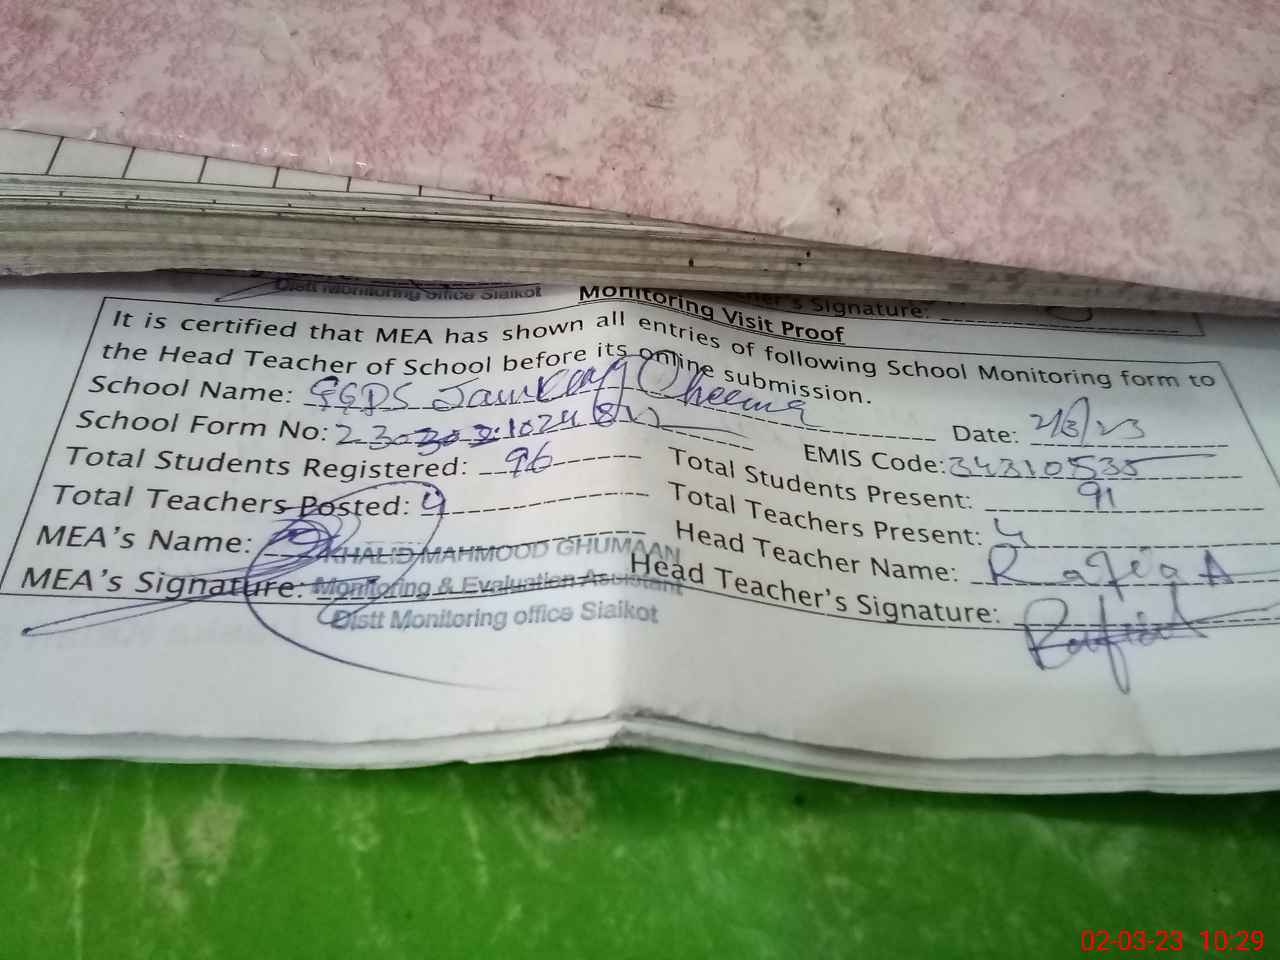 Distt Monitoring office Sialkot
Teacher's Signature:
Monitoring Visit Proof
It is certified that MEA has shown all entries of following School Monitoring form to
the Head Teacher of School before its online submission.
School Name: GGPS Cheema Date: 2/3/23
School Form No: EMIS Code: 34310535
Total Students Registered: 96 Total Students Present: 91
Total Teachers Posted: 4 Total Teachers Present: 4
MEA's Name: KHALID MAHMOOD GHUMAAN Head Teacher Name: RafiqA
MEA's Signature: Monitoring & Evaluation Assistant Head Teacher's Signature:
Distt Monitoring office Sialkot
02-03-23 10:29